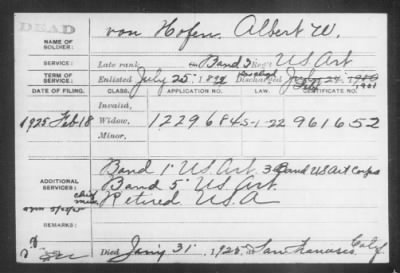 DEAD
NAME OF SOLDIER: von Hofen, Albert W.
SERVICE: Late rank Band 3 Reg't U.S. Art
TERM OF SERVICE: Enlisted July 25, 1898 Discharged July 24, 1901
DATE OF FILING. CLASS. APPLICATION NO. LAW. CERTIFICATE NO.
Invalid,
1925 Feb 18 Widow, 1229684 5-1-22 961652
Minor,
ADDITIONAL SERVICES: Band 1" U.S. Art. 3 Band US Art Corps
Band 5" U.S. Art.
Retired U.S.A
REMARKS:
Died Jan'y 31, 1925, at San Francisco Calif